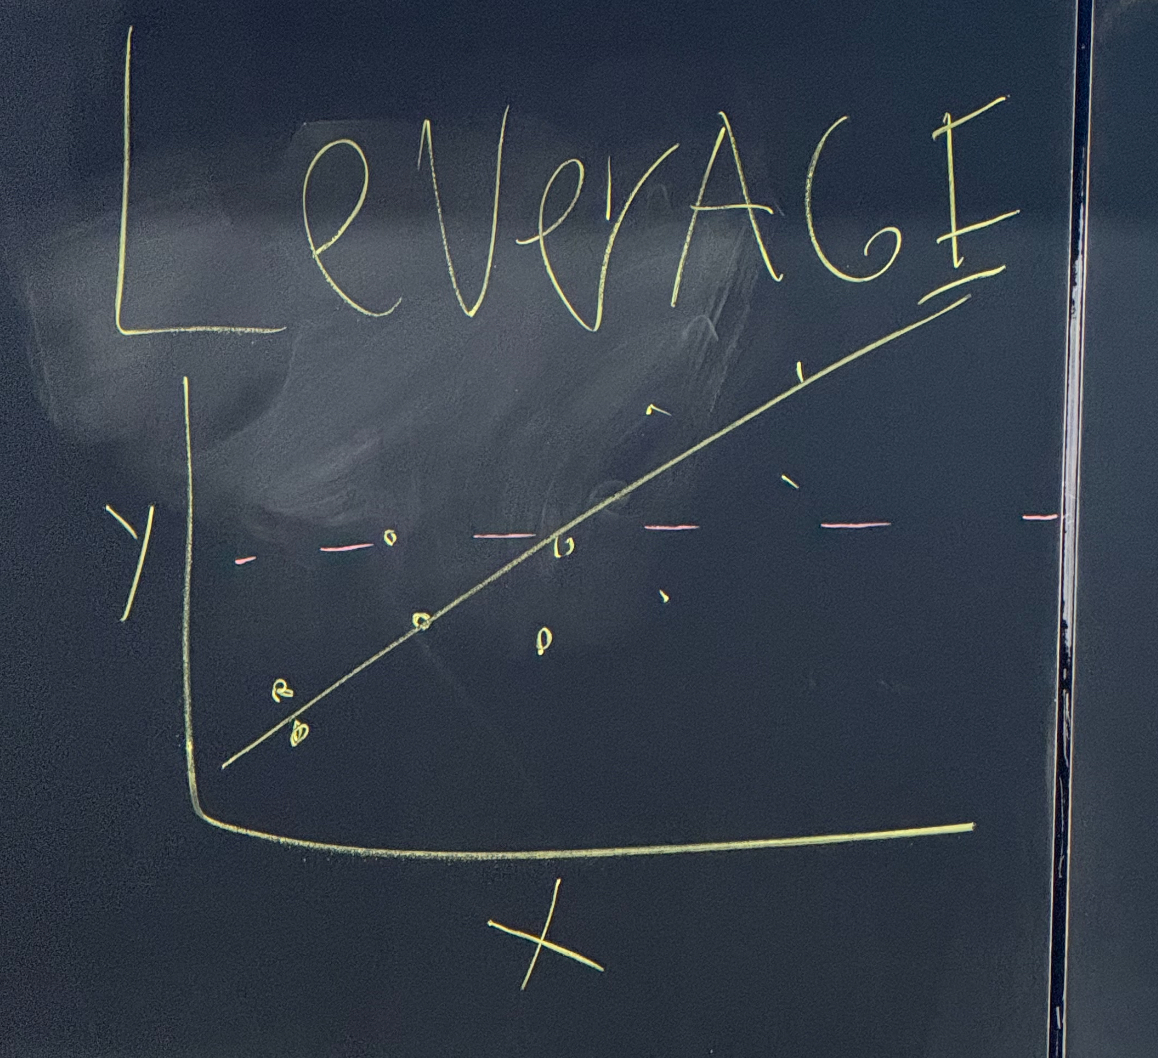 LeVerAGE
Y
X